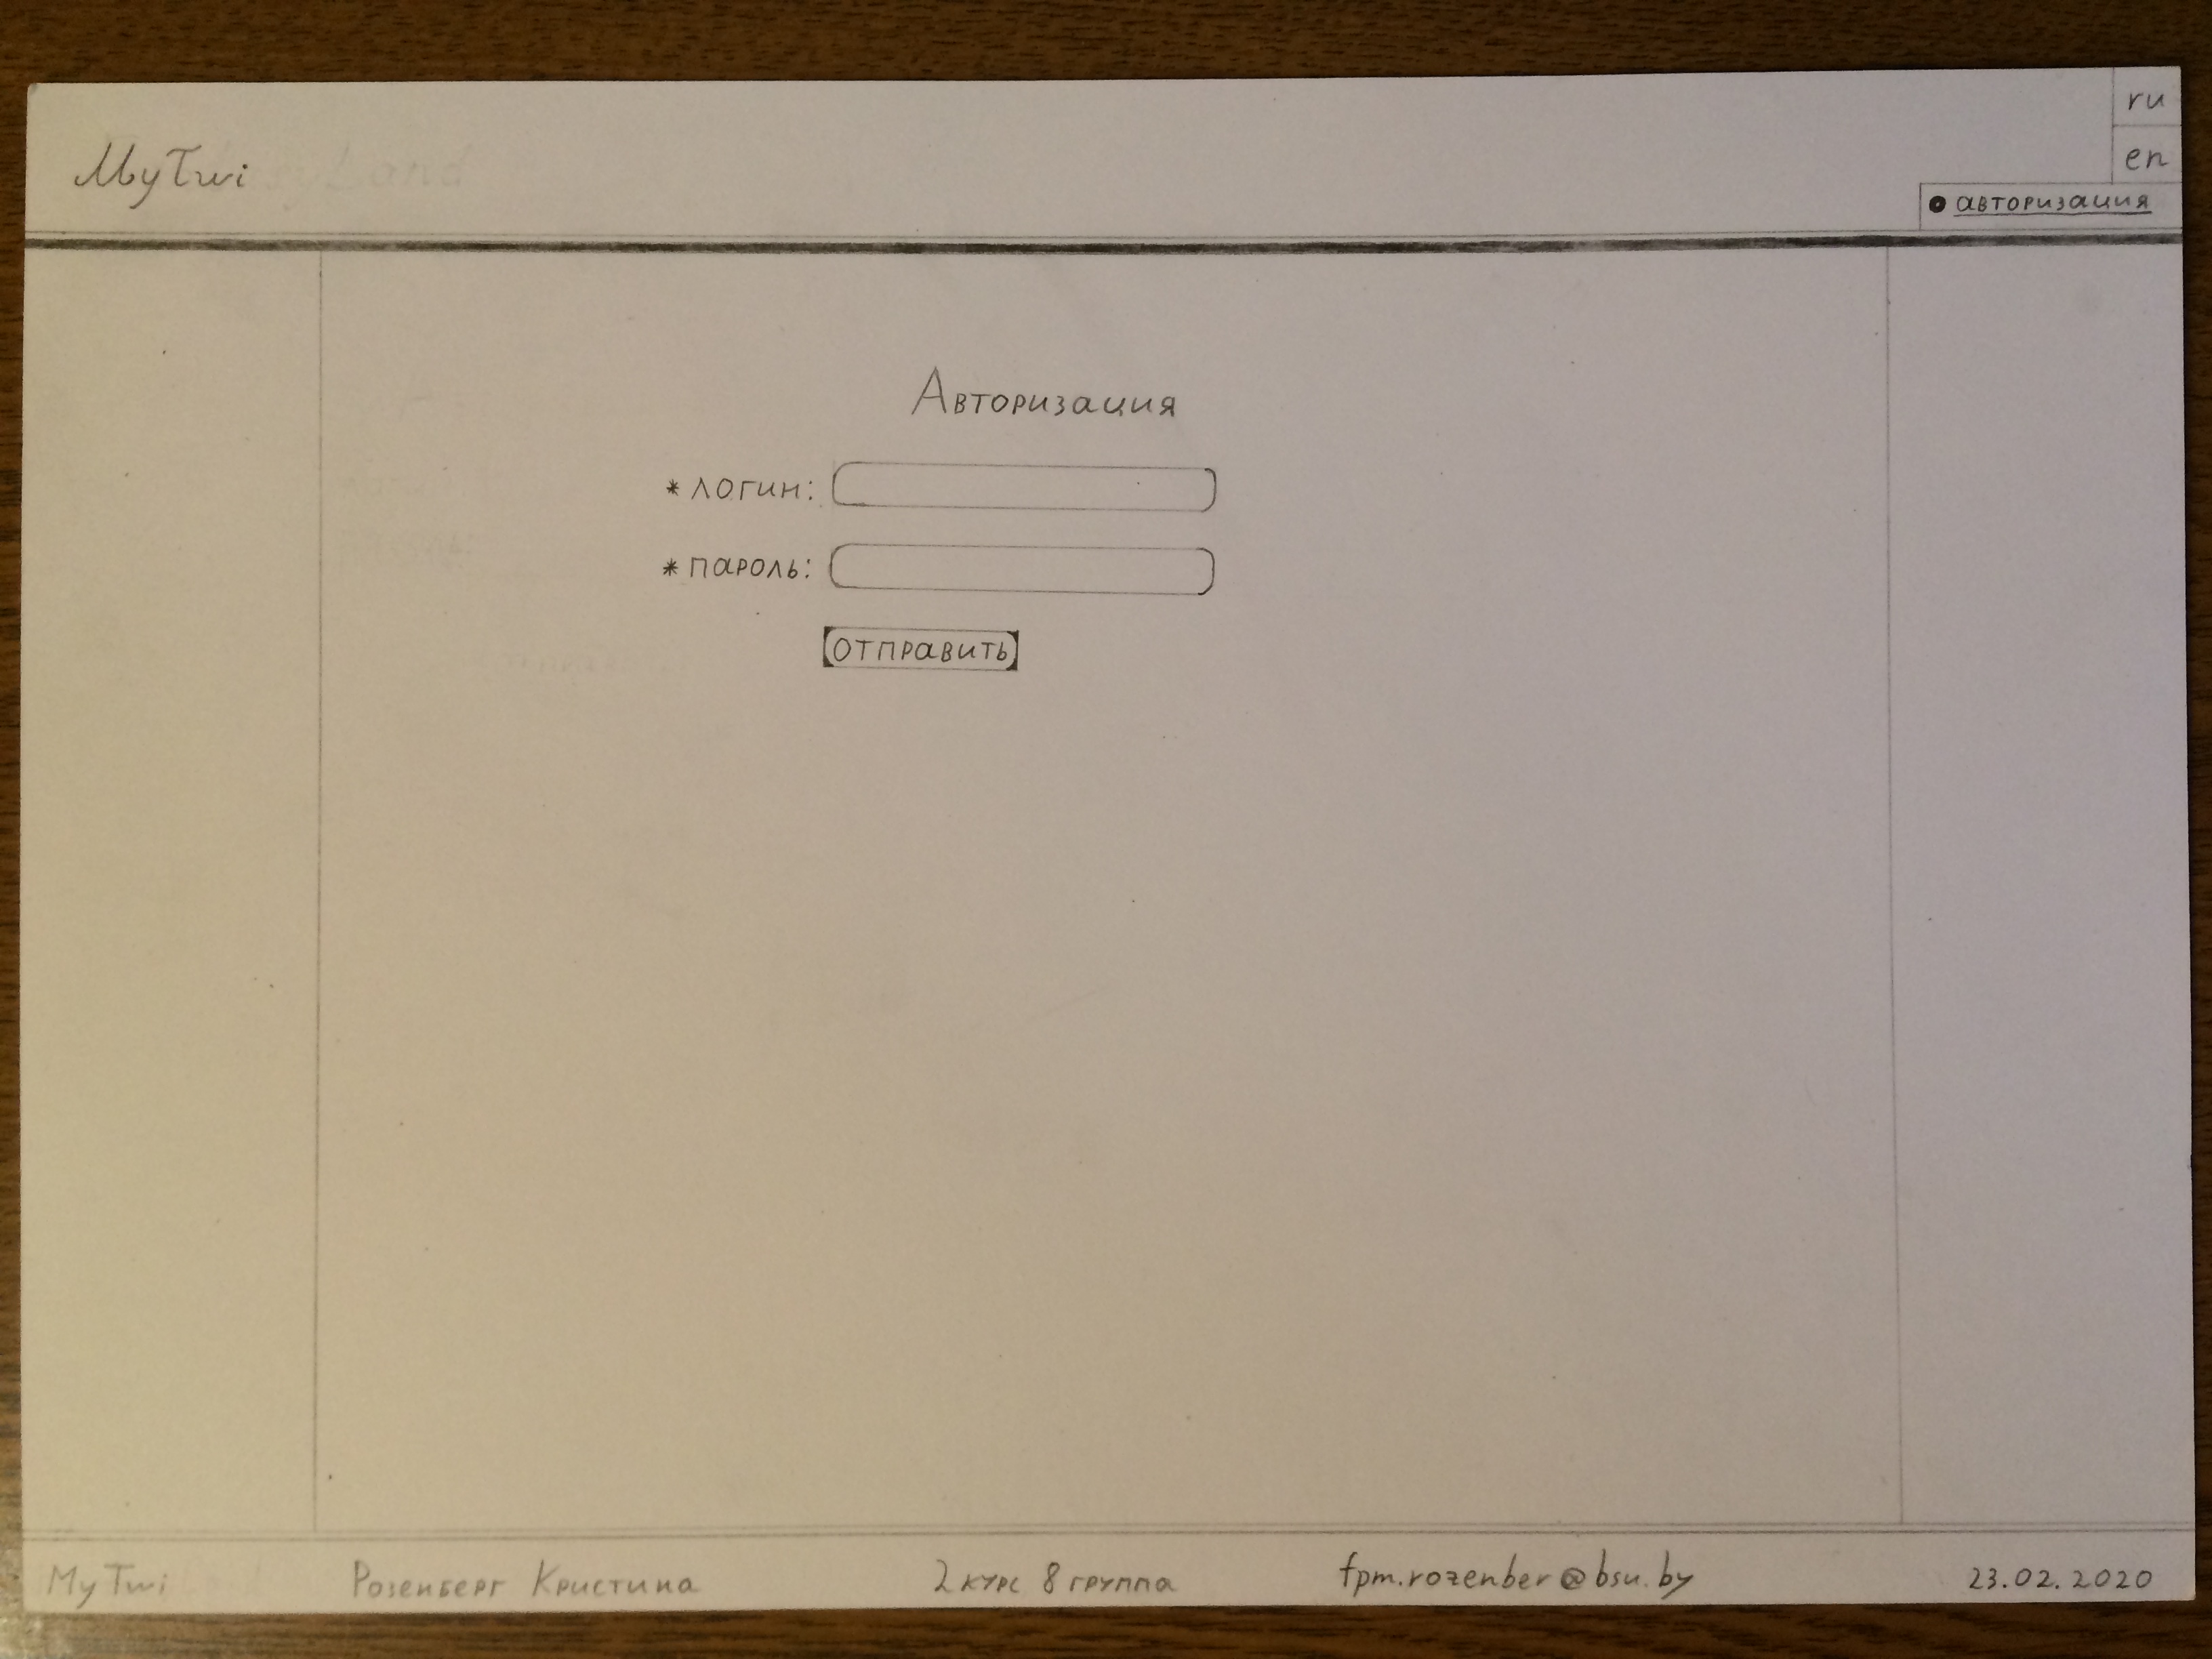 ru
MyTwi
en
• авторизация
Авторизация
* логин:
* пароль:
отправить
MyTwi Розенберг Кристина 2 курс 8 группа fpm.rozenber@bsu.by 23.02.2020